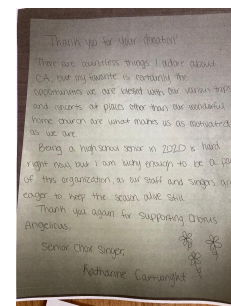 Thank you for your donation!
There are countless things I adore about
CA, but my favorite is certainly the
opportunities we are blessed with. Our various trips
and concerts at places other than our wonderful
home church are what makes us as motivated
as we are.
Being a high school senior in 2020 is hard
right now, but I am lucky enough to be a
of this organization, as our staff and singers are
eager to keep the season alive still.
Thank you again for supporting Chorus
Angelicus.
Senior Choir Singer,
Katharine Cartwright